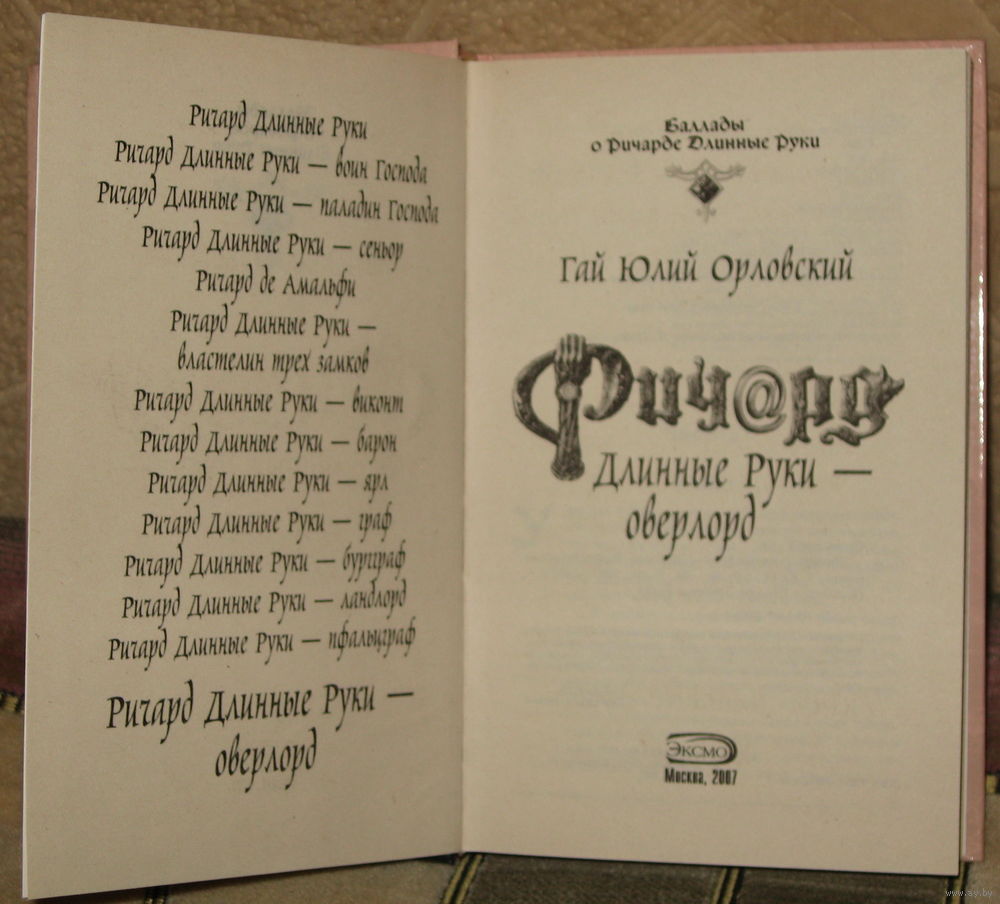 Ричард Длинные Руки
Ричард Длинные Руки — воин Господа
Ричард Длинные Руки — паладин Господа
Ричард Длинные Руки — сеньор
Ричард де Амальфи
Ричард Длинные Руки —
властелин трех замков
Ричард Длинные Руки — виконт
Ричард Длинные Руки — барон
Ричард Длинные Руки — ярл
Ричард Длинные Руки — граф
Ричард Длинные Руки — бургграф
Ричард Длинные Руки — ландлорд
Ричард Длинные Руки — пфальцграф
Ричард Длинные Руки —
оверлорд
Баллады
о Ричарде Длинные Руки
Гай Юлий Орловский
Рич@рд
Длинные Руки —
оверлорд
ЭКСМО
Москва, 2007
www.ay.by